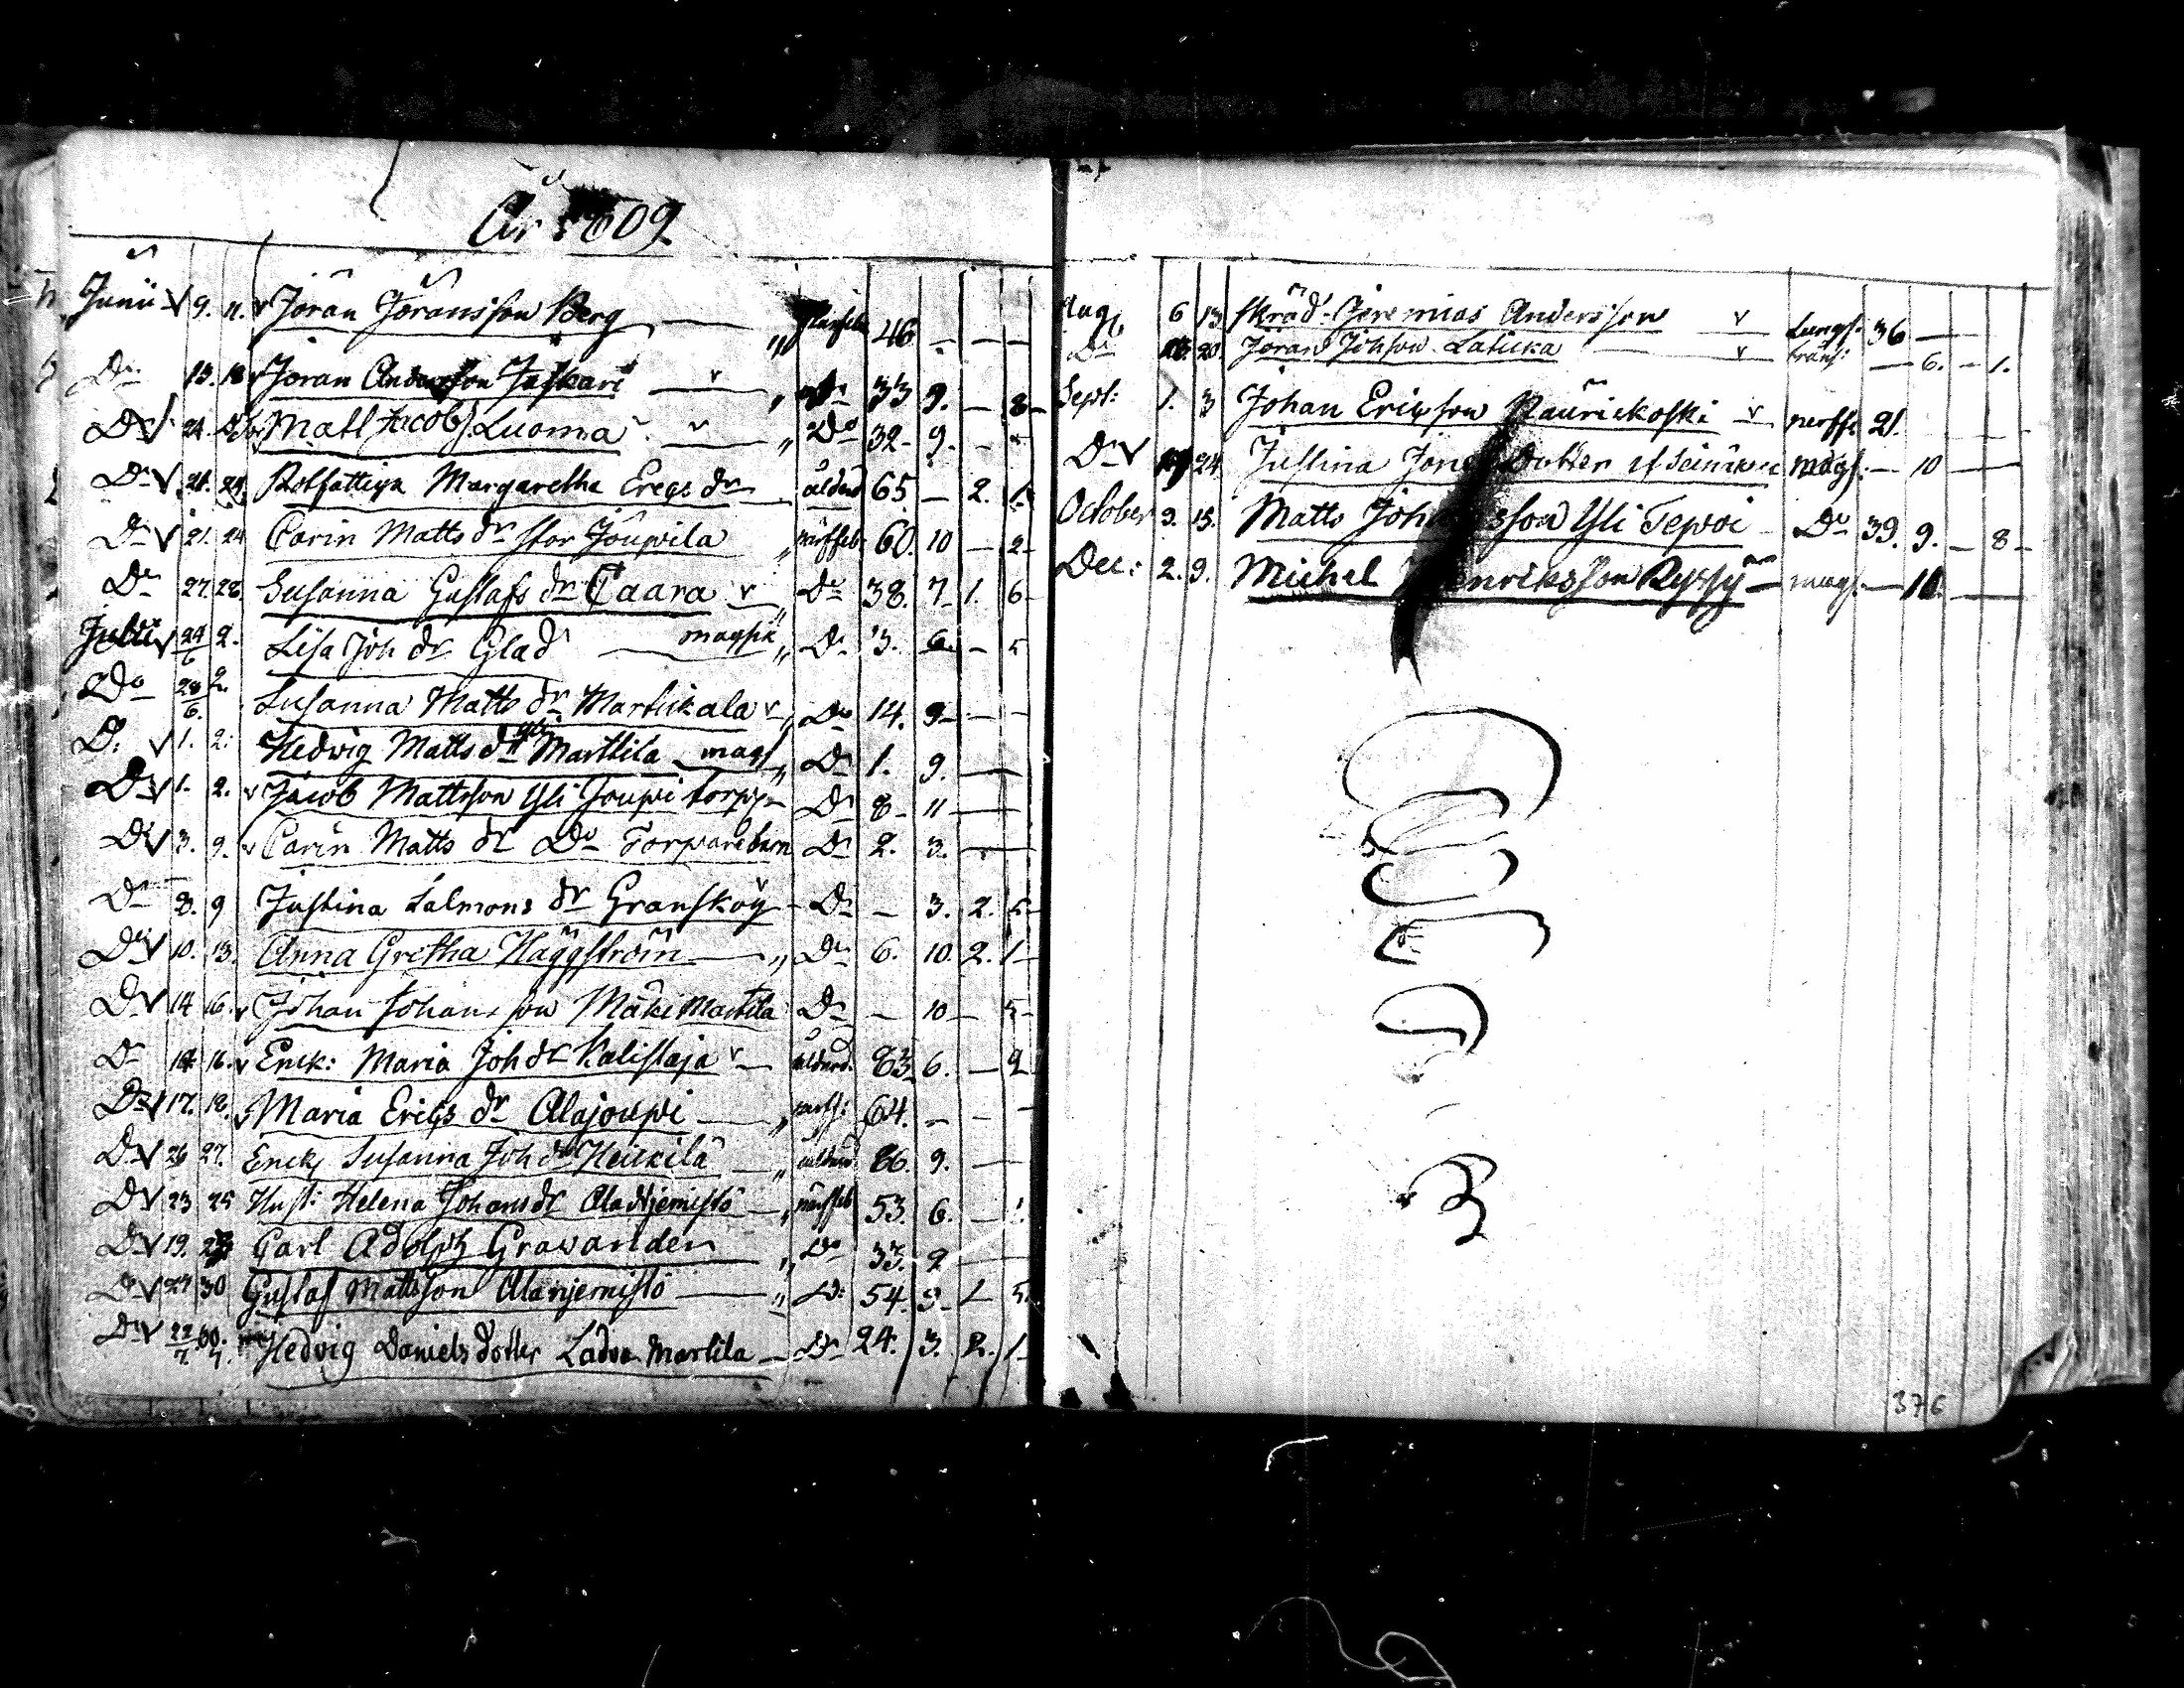 År 1809
Junii 9. 11. Jöran Jöransson Berg 46 — — —
Do 13. 18 Jöran Andersson Jaskari v Do 33 9. — 8
Do 21. Matl Jacobs. Luoma v Do 32 9. — —
Do 21. 24. Rotfattign Margaretha Ereqs dr ålderd 65 — 2. 1.
Do 21. 24 Carin Matts dr stor Jöupila närffeb 60. 10 — 2
Do 27. 28. Susanna Gustafs dr Caara v Do 38. 7. 1. 6
Julii 24/6 2. Lisa Joh dr Glad magsk Do 3. 6. — 5
Do 28/6. 2. Susanna Matts dr Martickala v Do 14. 9 — —
Do 1. 2. Hedwig Matts dr Yli Marttila mags Do 1. 9. —
Do 1. 2. Jacob Mattsson Yli Joupi torp Do 8 11 —
Do 3. 9. Carin Matts dr Do Torparebarn Do 2. 3. —
Do 8. 9 Justina Salmons dr Granskög Do — 3. 2. 5
Do 10. 13. Anna Gretha Häggström Do 6. 10. 2. 1
Do 14 16. Johan Johansson Mäki Martila Do — 10 — 5
Do 14 16. Enck: Maria Joh dr Kalistaja v ålderd. 83 6. — 2
Do 17. 18. Maria Eriqs dr Alajoupi nerff: 64. — —
Do 26 27. Enck Susanna Joh dr Heickilä ålderd 86. 9. —
Do 23 25 Hust: Helena Johans dr Alanjemistö närffeb 53. 6. — 1.
Do 19. Carl Adolph Grawander Do 33. 2 —
Do 27 30 Gustaf Mattsson Alanjemistö Do 54. 3. 1 5.
Do 22/7. 30/7. Hedvig Daniels dotter Ladva Martila Do 24. 3. 2. 1
Aug 6 13 Skräd. Jeremias Andersson v Lungs. 36 —
Do 20. Jöran Johson Laticka v bräns: — 6. — 1.
Sept: 1. 3 Johan Ericsson Raurickoski v nerff: 21.
Do 24 Justina Jons Dotter mags. — 10 —
October 9. 15. Matts Johansson Yli Tepoi Do 39. 9. — 8
Dec: 2. 9. Michel Henriksson Ryssy mags. — 10. —
376